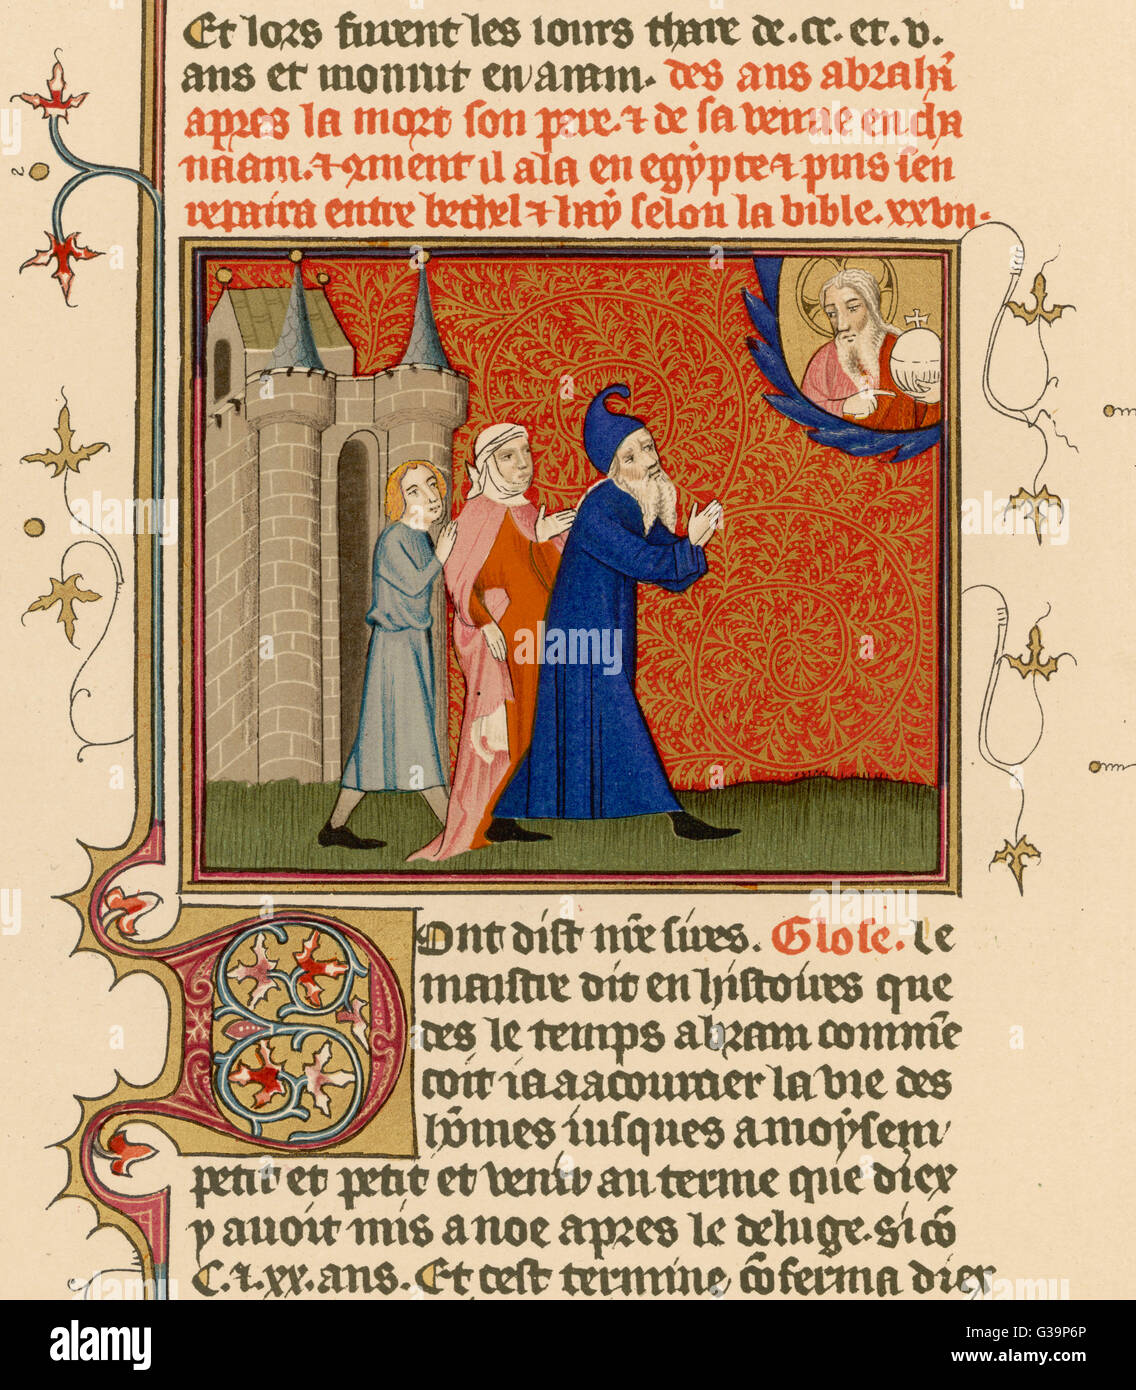 Et lors furent les iours thare de .cc. et .v.
ans et mourut en aram. des ans abrahā
apres la mort son pere. ⁊ de sa venue en cha
naam. ⁊ 9ment il ala en egypte ⁊ puis sen
repaira entre bethel ⁊ hay selon la bible. xxvii.
Dont dist nr̄e sires. Glose. Le
maistre dit en histoires que
des le temps abram comme
coit ia a acourcier la vie des
hōmes iusques a moysem
petit et petit et venir au terme que diex
y auoit mis a noe apres le deluge. si cō
C. ⁊ .xx. ans. Et cest termine cōferma diex
alamy
Image ID: G39P6P
www.alamy.com